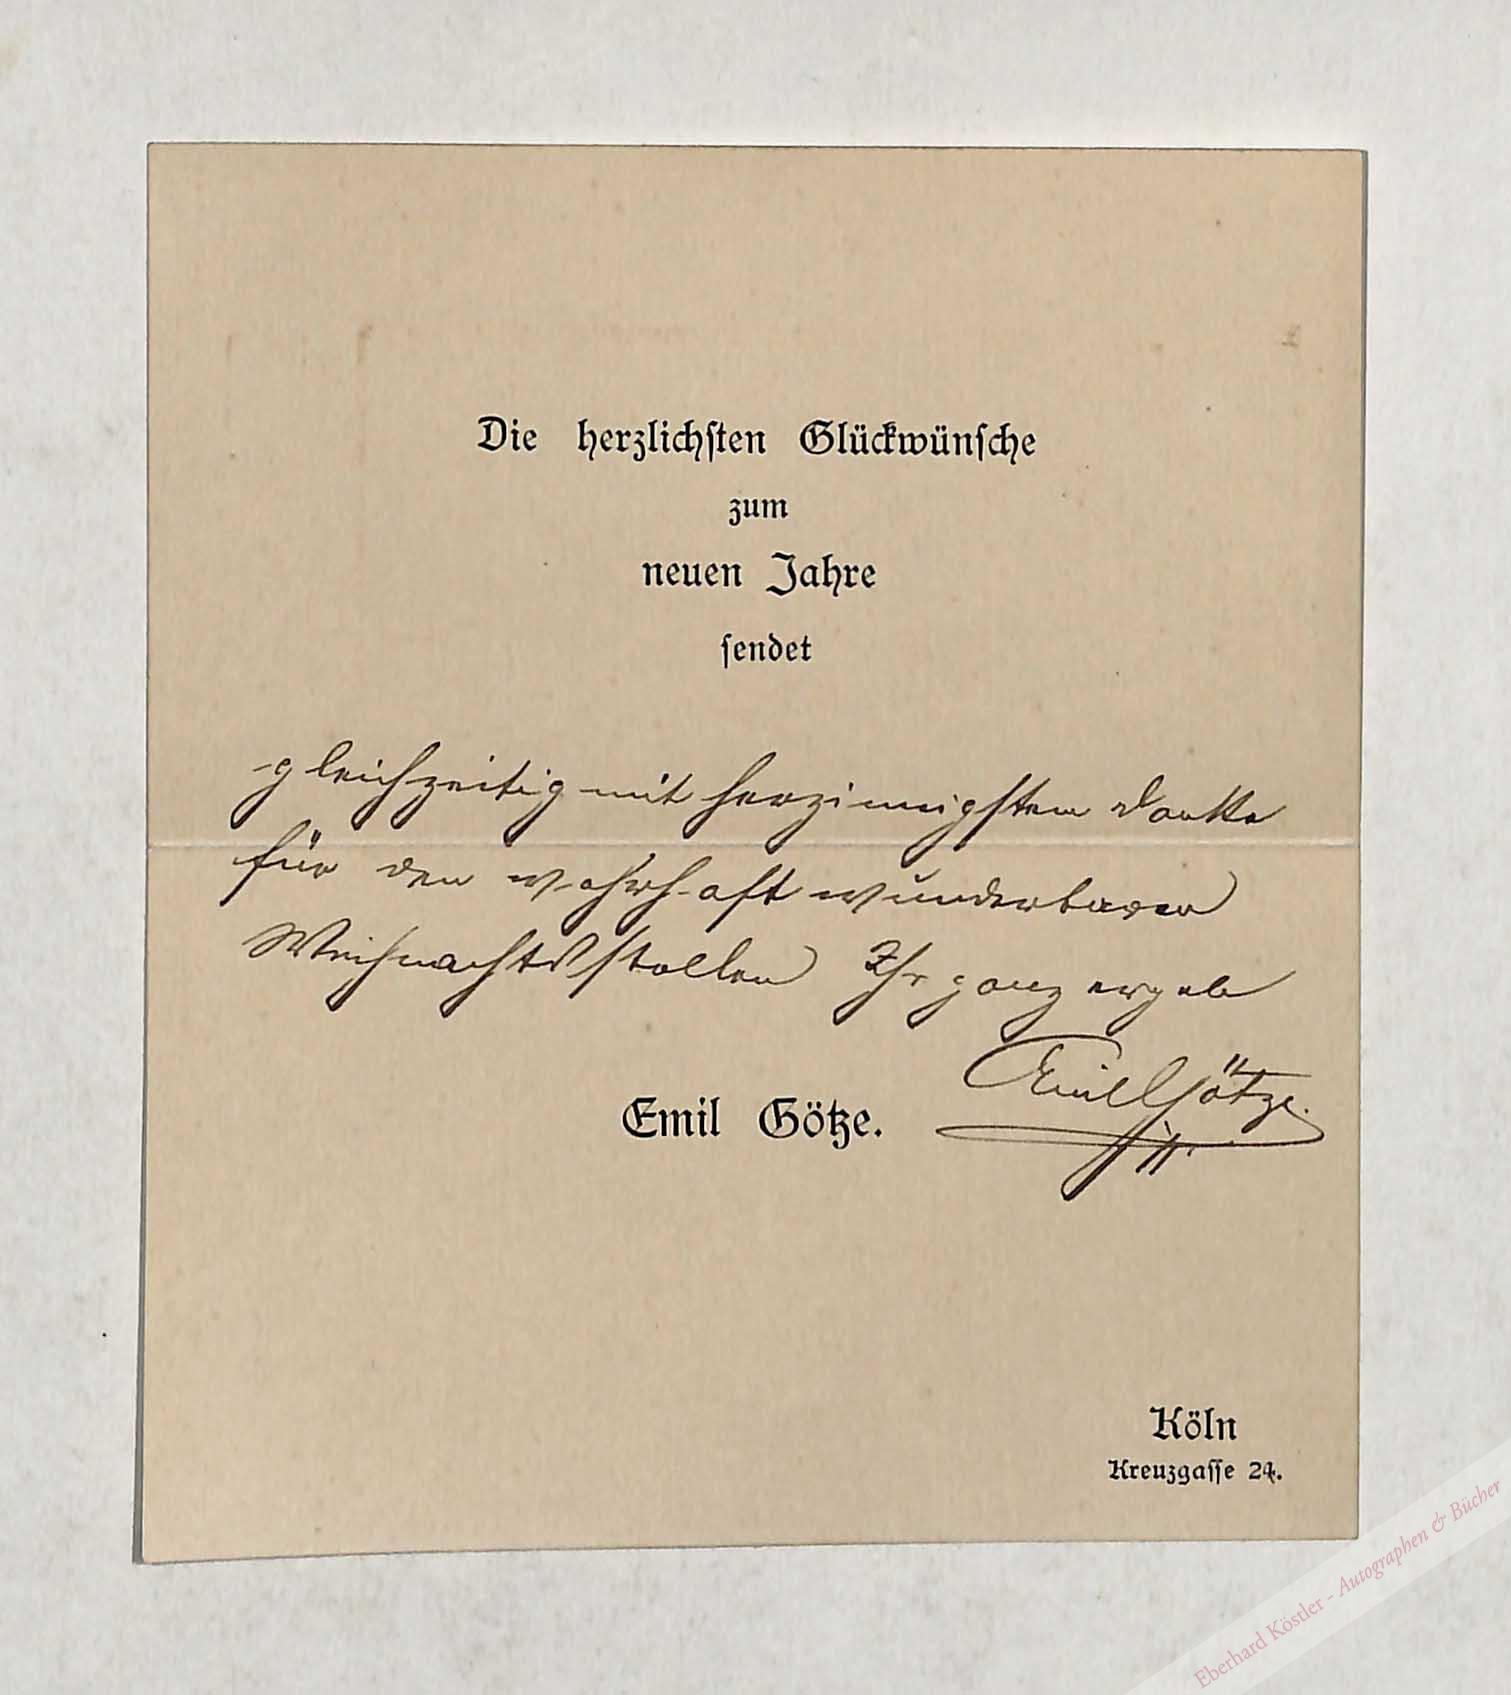 Die herzlichsten Glückwünsche
zum
neuen Jahre
sendet
gleichzeitig mit herzinnigstem Danke
für den wahrhaft wunderbaren
Weihnachtsstollen Ihr ganz ergeb
Emil Götze.
Emil Götze.
Köln
Kreuzgasse 24.
Eberhard Köstler - Autographen & Bücher